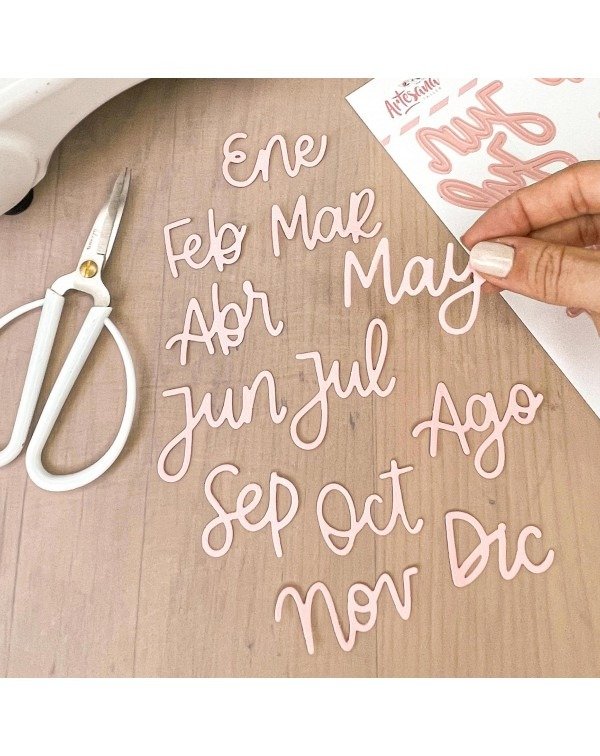 Artesana
Ene
Feb Mar
May
Abr
Jun Jul
Ago
Sep Oct
Dic
Nov